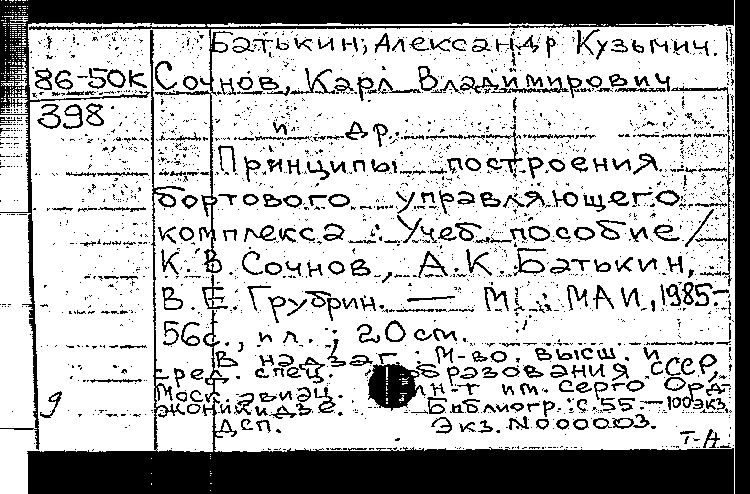 Батькин, Александр Кузьмич.
86-50К Сочнов, Карл Владимирович
398
и др.
Принципы построения
бортового управляющего
комплекса : Учеб. пособие /
К. В. Сочнов, А. К. Батькин,
В. Е. Грубрин. — М. : МАИ, 1985.-
56с., ил. ; 20 см.
В надзаг. : М-во. высш. и
сред. спец. образования СССР,
Моск. авиац. ин-т им. Серго Орд-
жоникидзе. Библиогр.: с. 55. — 100экз
9 Дсп. Экз. N000003.
Т-А